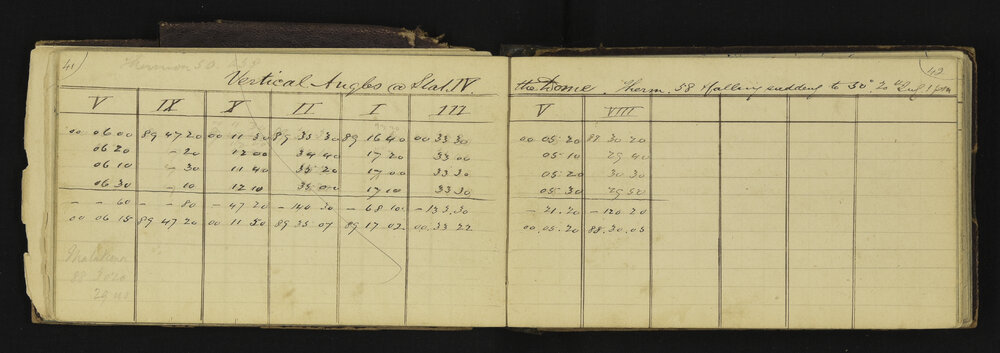 41
Vertical Angles @ Stat. IV.
V IX X II I III
00 06 00 89 47 20 00 11 50 89 35 30 89 16 40 00 33 30
06 20 - 20 12 00 34 40 17 20 33 00
06 10 - 30 11 40 35 20 17 00 33 30
06 30 - 10 12 10 35 00 17 10 33 30
- - 60 - - 80 - 47 20 - 140 30 - 68 10 - 133.30
00 06 15 89 47 20 00 11 50 89 35 07 89 17 02 00 33 22
88 30 20
29 40
42
the Dome. Therm. 58 falling suddenly to 30°. 20th
V VIII
00 05 20 88 30 20
05 10 29 40
05 20 30 30
05 30 29 50
- 21.20 - 120 20
00.05.20 88.30.05